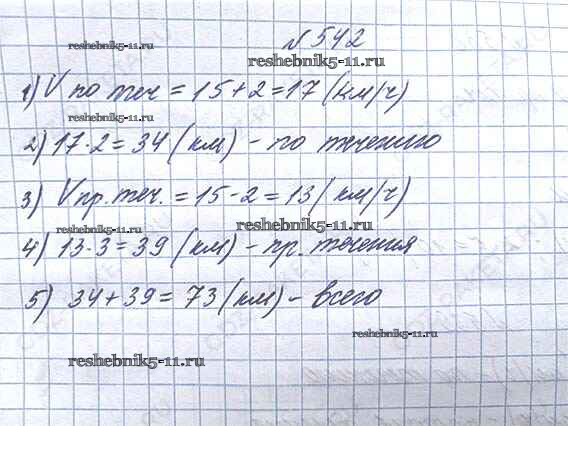 № 542
reshebnik5-11.ru
reshebnik5-11.ru
1) V по теч = 15 + 2 = 17 (км/ч)
reshebnik5-11.ru
2) 17 · 2 = 34 (км) - по течению
3) Vпр. теч. = 15 - 2 = 13 (км/ч)
reshebnik5-11.ru
reshebnik5-11.ru
4) 13 · 3 = 39 (км) - пр. течения
5) 34 + 39 = 73 (км) - всего
reshebnik5-11.ru
reshebnik5-11.ru